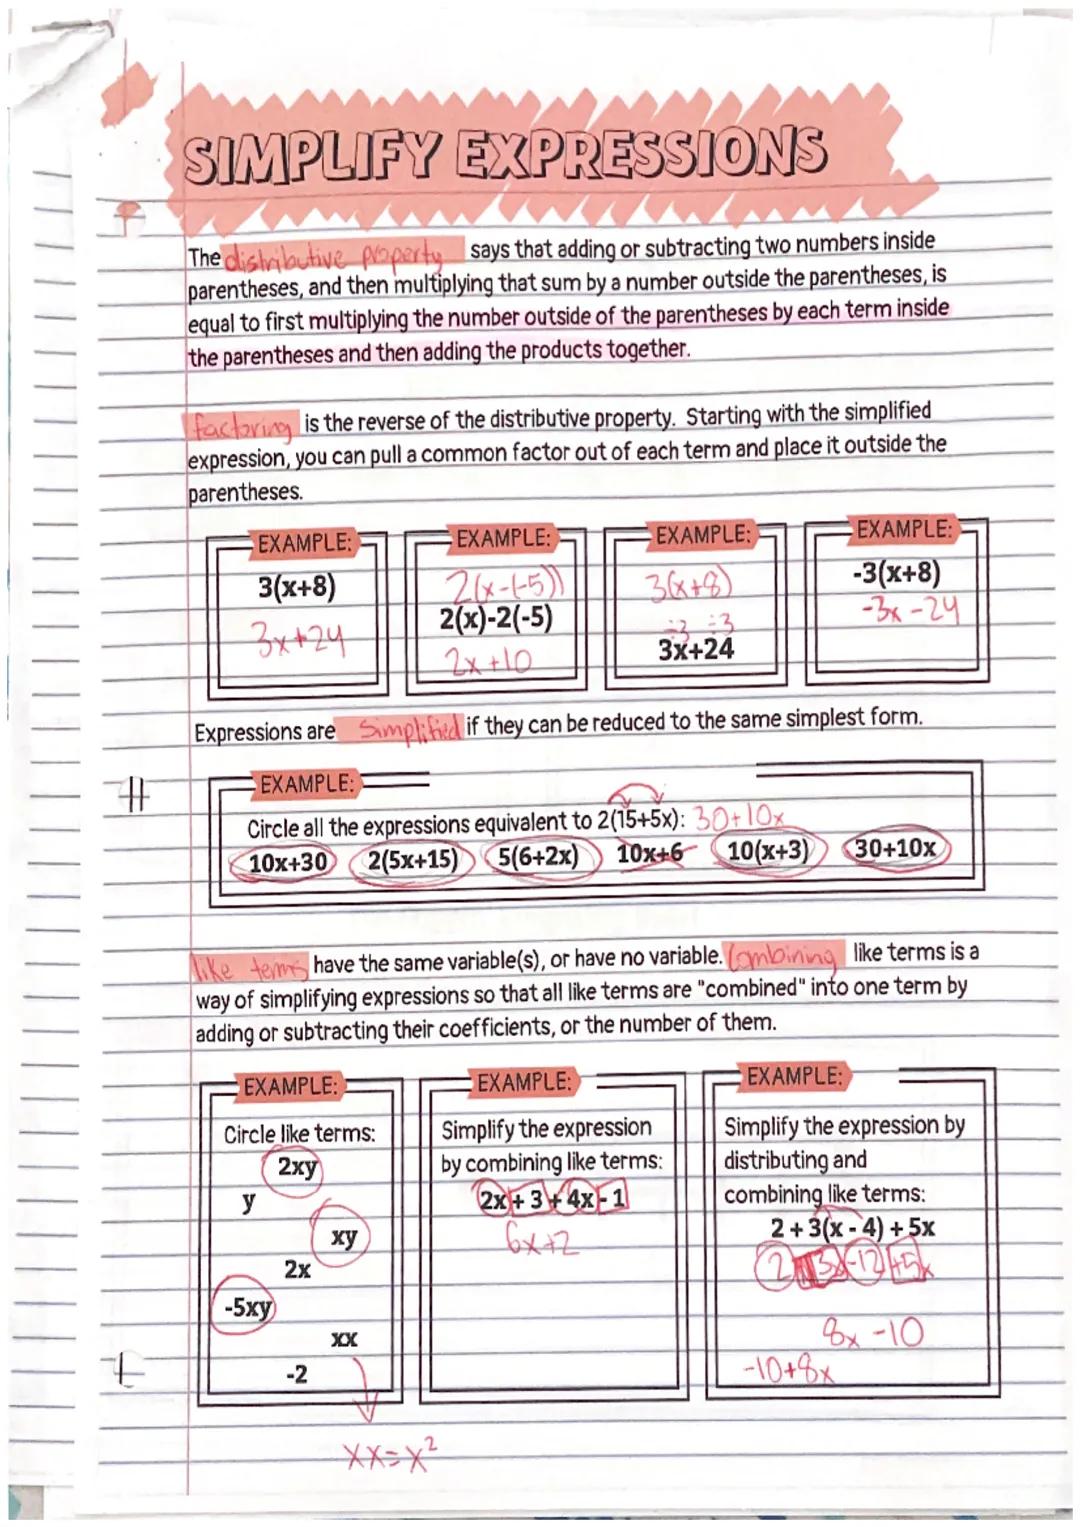 SIMPLIFY EXPRESSIONS
The distributive property says that adding or subtracting two numbers inside
parentheses, and then multiplying that sum by a number outside the parentheses, is
equal to first multiplying the number outside of the parentheses by each term inside
the parentheses and then adding the products together.
factoring is the reverse of the distributive property. Starting with the simplified
expression, you can pull a common factor out of each term and place it outside the
parentheses.
EXAMPLE:
3(x+8)
3x+24
EXAMPLE:
2(x-(-5))
2(x)-2(-5)
2x+10
EXAMPLE:
3(x+8)
÷3 ÷3
3x+24
EXAMPLE:
-3(x+8)
-3x-24
Expressions are Simplified if they can be reduced to the same simplest form.
EXAMPLE:
Circle all the expressions equivalent to 2(15+5x): 30+10x
10x+30 2(5x+15) 5(6+2x) 10x+6 10(x+3) 30+10x
like terms have the same variable(s), or have no variable. Combining like terms is a
way of simplifying expressions so that all like terms are "combined" into one term by
adding or subtracting their coefficients, or the number of them.
EXAMPLE:
Circle like terms:
2xy
y
xy
2x
-5xy
xx
-2
xx=x²
EXAMPLE:
Simplify the expression
by combining like terms:
2x+3+4x-1
6x+2
EXAMPLE:
Simplify the expression by
distributing and
combining like terms:
2+3(x-4)+5x
2+3x-12+5x
8x-10
-10+8x